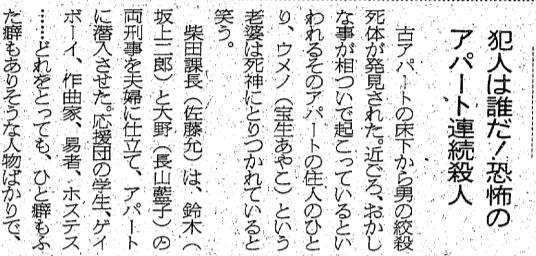 犯人は誰だ!恐怖の
アパート連続殺人
古アパートの床下から男の絞殺
死体が発見された。近ごろ、おかし
な事が相ついで起こっているとい
われるそのアパートの住人のひと
り、ウメノ(宝生あやこ)という
老婆は死神にとりつかれていると
笑う。
柴田課長(佐藤允)は、鈴木(
坂上二郎)と大野(長山藍子)の
両刑事を夫婦に仕立て、アパート
に潜入させた。応援団の学生、ゲイ
ボーイ、作曲家、易者、ホステス
……どれをとっても、ひと癖もふ
た癖もありそうな人物ばかりで、